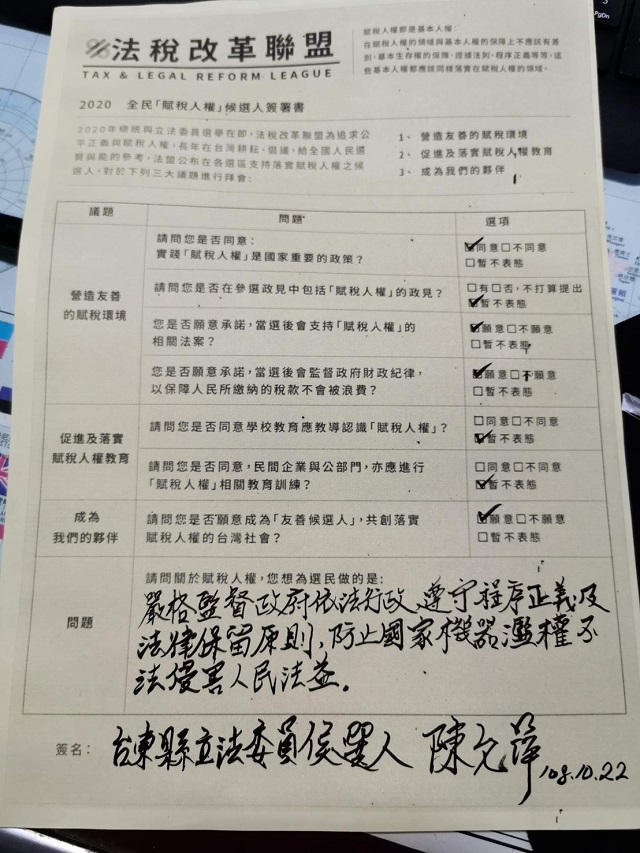 法稅改革聯盟
TAX & LEGAL REFORM LEAGUE
賦稅人權即是基本人權：
在賦稅人權的領域與基本人權的保障上不應該有差
別，基本生存權的保障、證據法則、程序正義等等，這
些基本人權都應該同樣落實在賦稅人權的領域。
2020 全民「賦稅人權」候選人簽署書
2020年總統與立法委員選舉在即，法稅改革聯盟為追求公
平正義與賦稅人權，長年在台灣耕耘、倡議，給全國人民選
賢與能的參考，法盟公布在各選區支持落實賦稅人權之候
選人，對於下列三大議題進行拜會：
1、 營造友善的賦稅環境
2、 促進及落實賦稅人權教育
3、 成為我們的夥伴
議題 問題 選項
營造友善
的賦稅環境
請問您是否同意：
實踐「賦稅人權」是國家重要的政策？
☑同意□不同意
□暫不表態
請問您是否在參選政見中包括「賦稅人權」的政見？
□有□否，不打算提出
☑暫不表態
您是否願意承諾，當選後會支持「賦稅人權」的
相關法案？
☑願意□不願意
□暫不表態
您是否願意承諾，當選後會監督政府財政紀律，
以保障人民所繳納的稅款不會被浪費？
☑願意□不願意
□暫不表態
促進及落實
賦稅人權教育
請問您是否同意學校教育應教導認識「賦稅人權」？
□同意□不同意
☑暫不表態
請問您是否同意，民間企業與公部門，亦應進行
「賦稅人權」相關教育訓練？
□同意□不同意
☑暫不表態
成為
我們的夥伴
請問您是否願意成為「友善候選人」，共創落實
賦稅人權的台灣社會？
☑願意□不願意
□暫不表態
問題
請問關於賦稅人權，您想為選民做的是：
嚴格監督政府依法行政、遵守程序正義及
法律保留原則，防止國家機器濫權不
法侵害人民法益。
簽名： 台東縣立法委員侯選人 陳允萍 108.10.22
PgDn